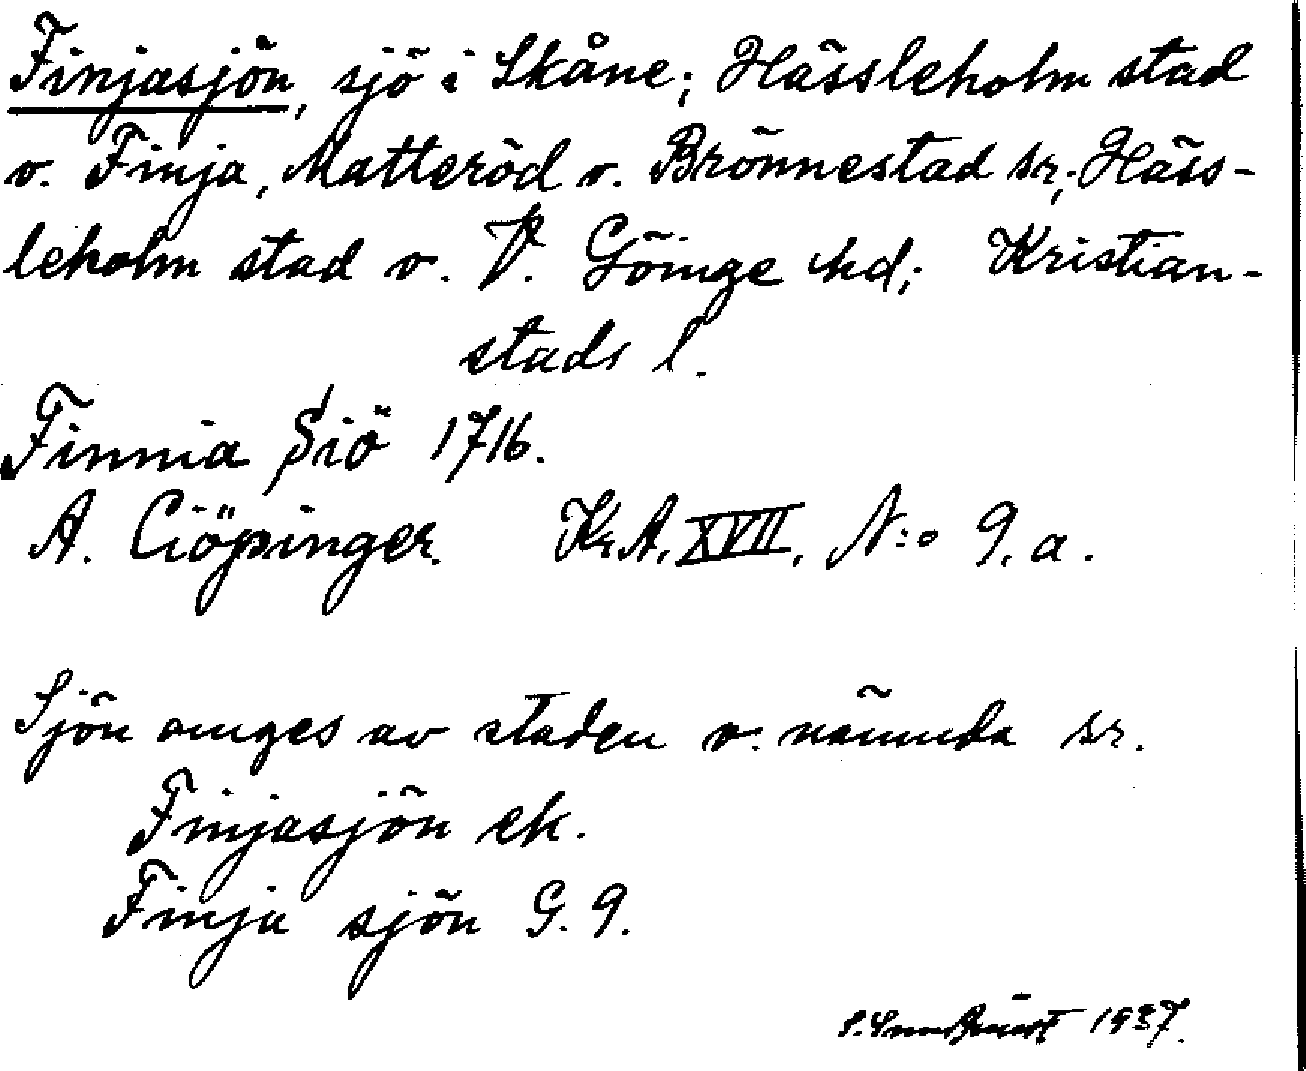 Finjasjön, sjö i Skåne; Hässleholm stad
o. Finja, Matteröd o. Brönnestad sr; Häss-
leholm stad o. V. Göinge hd; Kristian-
stads l.
Finnia Siö 1716.
A. Ciöpinger. Kr.A. XVII. N:o 9. a.
Sjön omges av staden o. nämnda sr.
Finjasjön ek.
Finja sjön G. 9.
1937.